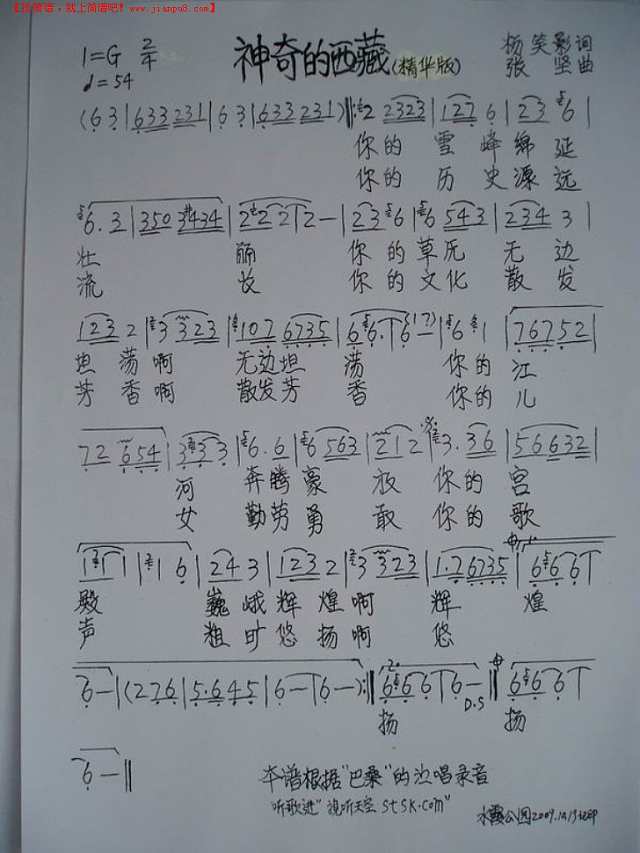 简谱,就上简谱吧! www.jianpu8.com
神奇的西藏(精华版)
1=G 2/4
♩=54
杨笑影词
张 坚曲
(6 3|633 231|6 3|633 231)‖:2 2323|127 6|23 6|
你的 雪峰绵延
你的 历史源远
6. 3|350 3#434|2222|2—|23 6|6 543|234 3|
壮 丽 你的草原 无边
流 长 你的文化 散发
123 2|3 323|107 6735|66.|6(17)|6 1|76752|
坦荡啊 无边坦荡 你的江
芳香啊 散发芳香 你的儿
72 654|333|6. 6|6 563|212|3. 36|56632|
河 奔腾豪放 你的宫
女 勤劳勇敢 你的歌
111|1 6|24 3|123 2|3 323|1.7 6735|666|
殿 巍峨辉煌啊 辉 煌
声 粗旷悠扬啊 悠
6—|(276|5.645|6—|6—):‖666|6—‖666|
D.S
扬 扬
6—‖
本谱根据"巴桑"的演唱录音
听歌进"视听天空 stsk.com"
水霞公园2009.